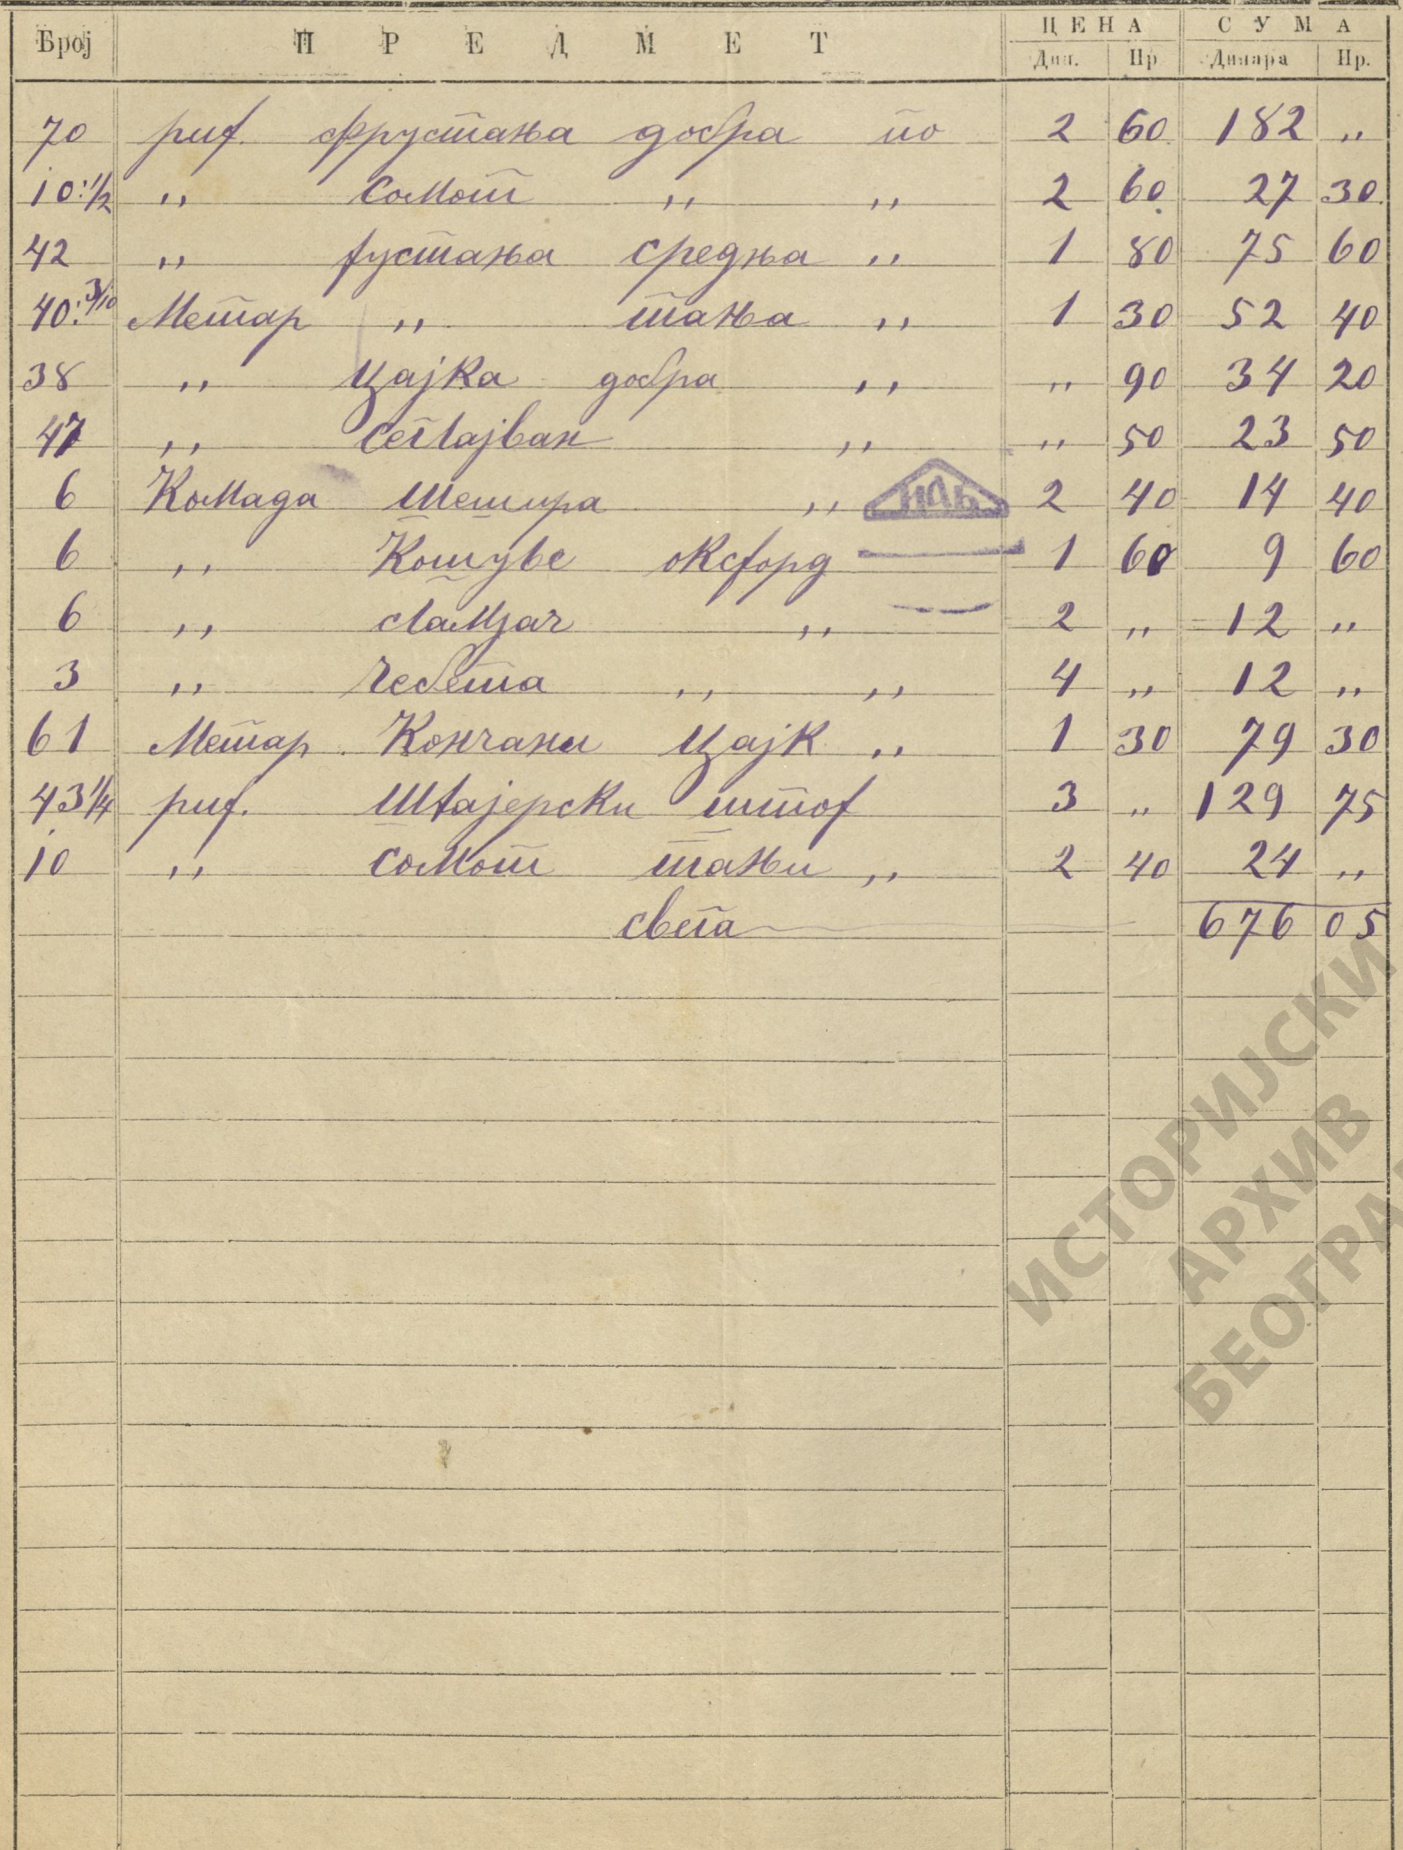 Број ПРЕДМЕТ ЦЕНА СУМА
Дин. Пр Динара Пр.
70 риф. фрустања добра по 2 60 182 „
10:1/2 „ сомот „ „ 2 60 27 30
42 „ фустања средња „ 1 80 75 60
40:3/10 Метар „ тања „ 1 30 52 40
38 „ цајка добра „ „ 90 34 20
47 „ „ „ 50 23 50
6 Комада шешира „ 2 40 14 40
6 „ Кошуље оксфорд 1 60 9 60
6 „ „ 2 „ 12 „
3 „ Чебета „ „ 4 „ 12 „
61 Метар Кончани цајк „ 1 30 79 30
43 1/4 риф. Штајерски штоф 3 „ 129 75
10 „ сомот тањи „ 2 40 24 „
свега 676 05
ИСТОРИЈСКИ
АРХИВ
БЕОГРА